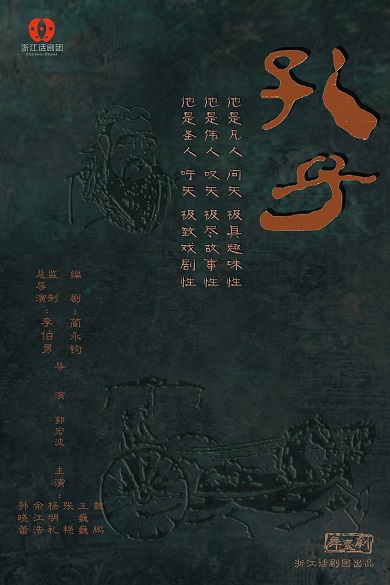 浙江话剧团
ZHEJIANG DRAMA
孔子
他是凡人 问天 极具趣味性
他是伟人 叹天 极尽故事性
他是圣人 吁天 极致戏剧性
编剧：蔺永钧
总导演
监制：李伯男
导演：郭宏波
主演：
魏鹏
王巍巍
张艳
杨明礼
余江浩
孙晓蕾
浙江话剧团出品